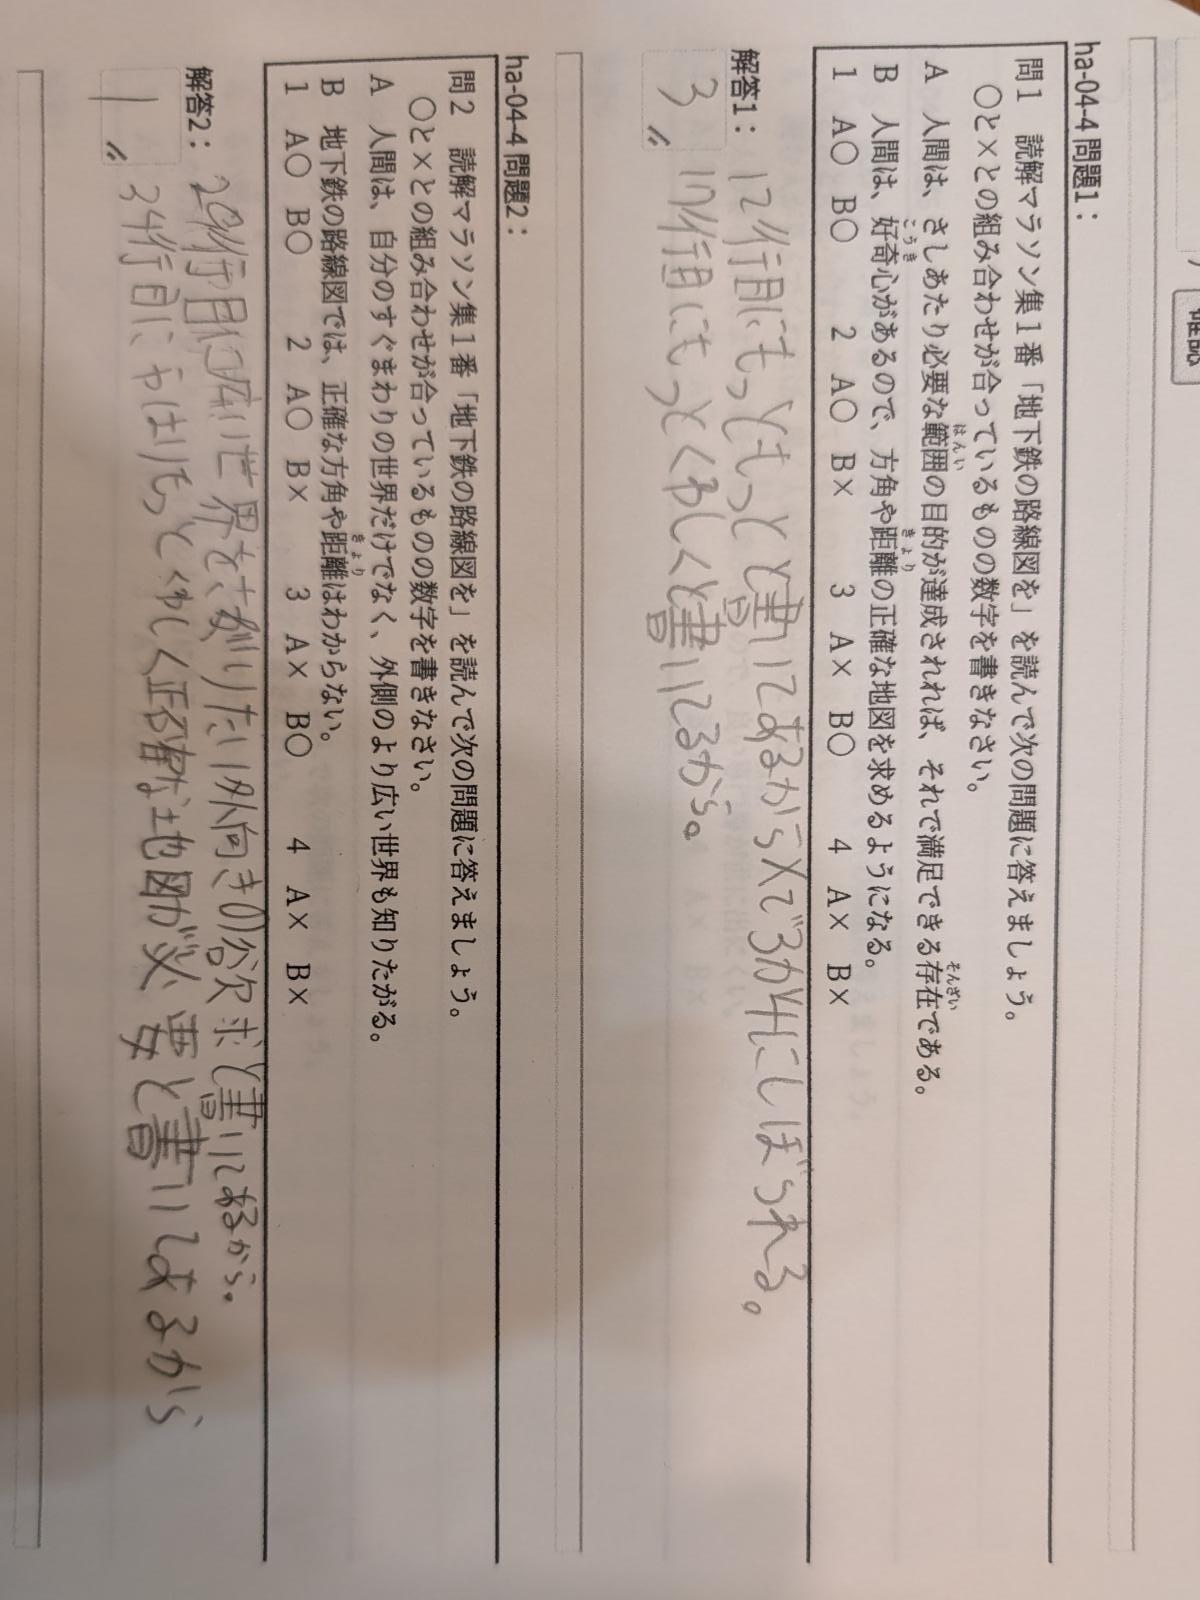 確認
ha-04-4 問題1：
問1　読解マラソン集1番「地下鉄の路線図を」を読んで次の問題に答えましょう。
○と×との組み合わせが合っているものの数字を書きなさい。
A　人間は、さしあたり必要な範囲の目的が達成されれば、それで満足できる存在である。
はんい
そんざい
B　人間は、好奇心があるので、方角や距離の正確な地図を求めるようになる。
こうき
きょり
1　A○　B○　2　A○　B×　3　A×　B○　4　A×　B×
解答1：
12行目にもっともっとと書いてあるから×で3か4にしぼられる。
3〃
17行目にもっとくわしくと書いてるから。
ha-04-4 問題2：
問2　読解マラソン集1番「地下鉄の路線図を」を読んで次の問題に答えましょう。
○と×との組み合わせが合っているものの数字を書きなさい。
A　人間は、自分のすぐまわりの世界だけでなく、外側のより広い世界も知りたがる。
B　地下鉄の路線図では、正確な方角や距離はわからない。
きょり
1　A○　B○　2　A○　B×　3　A×　B○　4　A×　B×
解答2：
世界を たい外向きの欲求と書いてあるから。
1〃
34行目にやはりもっとくわしく正確な地図が必要と書いてあるから